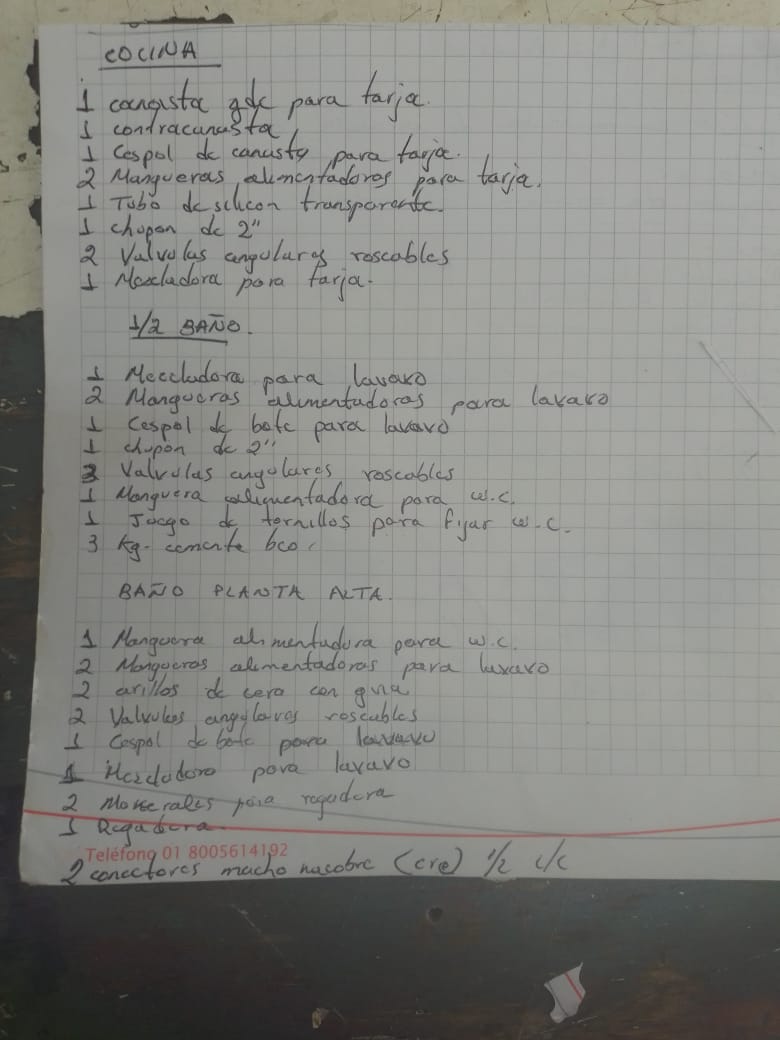 COCINA
1 canasta gde para tarja.
1 contracanasta
1 Cespol de canasta para tarja.
2 Mangueras alimentadoras para tarja.
1 Tubo de silicon transparente.
1 chupon de 2"
2 Valvulas angulares roscables
1 Mezcladora para tarja.
1/2 BAÑO.
1 Mezcladora para lavavo
2 Mangueras alimentadoras para lavavo
1 Cespol de bote para lavavo
1 chupon de 2"
3 Valvulas angulares roscables
1 Manguera alimentadora para w.c.
1 Juego de tornillos para fijar w.c.
3 Kg. cemente bco.
BAÑO PLANTA ALTA.
1 Manguera alimentadora para w.c.
2 Mangueras alimentadoras para lavavo
2 arillos de cera con guia
2 Valvulas angulares roscables
1 Cespol de bote para lavavo
1 Mezcladora para lavavo
2 Manerales para regadera
1 Regadera
Teléfono 01 8005614192
2 conectores macho nacobre (cre) 1/2 c/c